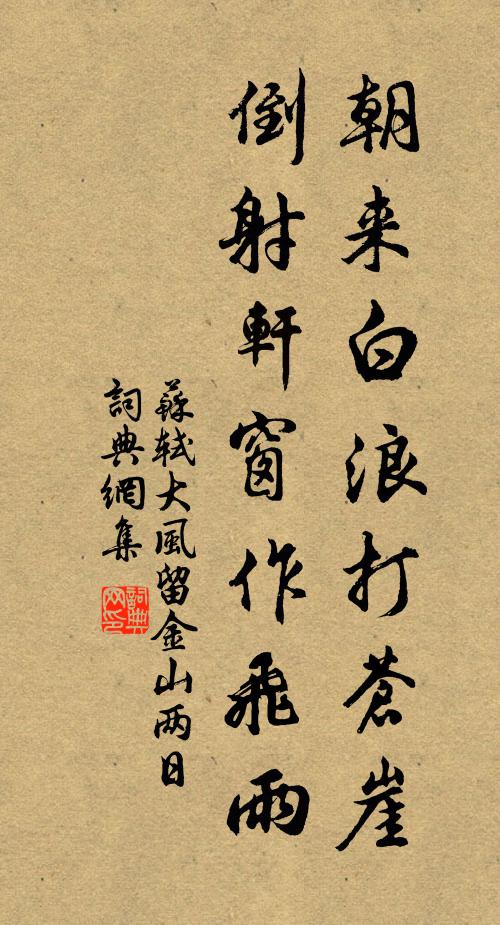 朝来白浪打蒼崖
倒射軒窗作飛雨
蘇軾大風留金山两日
詞典網集
詞典网印